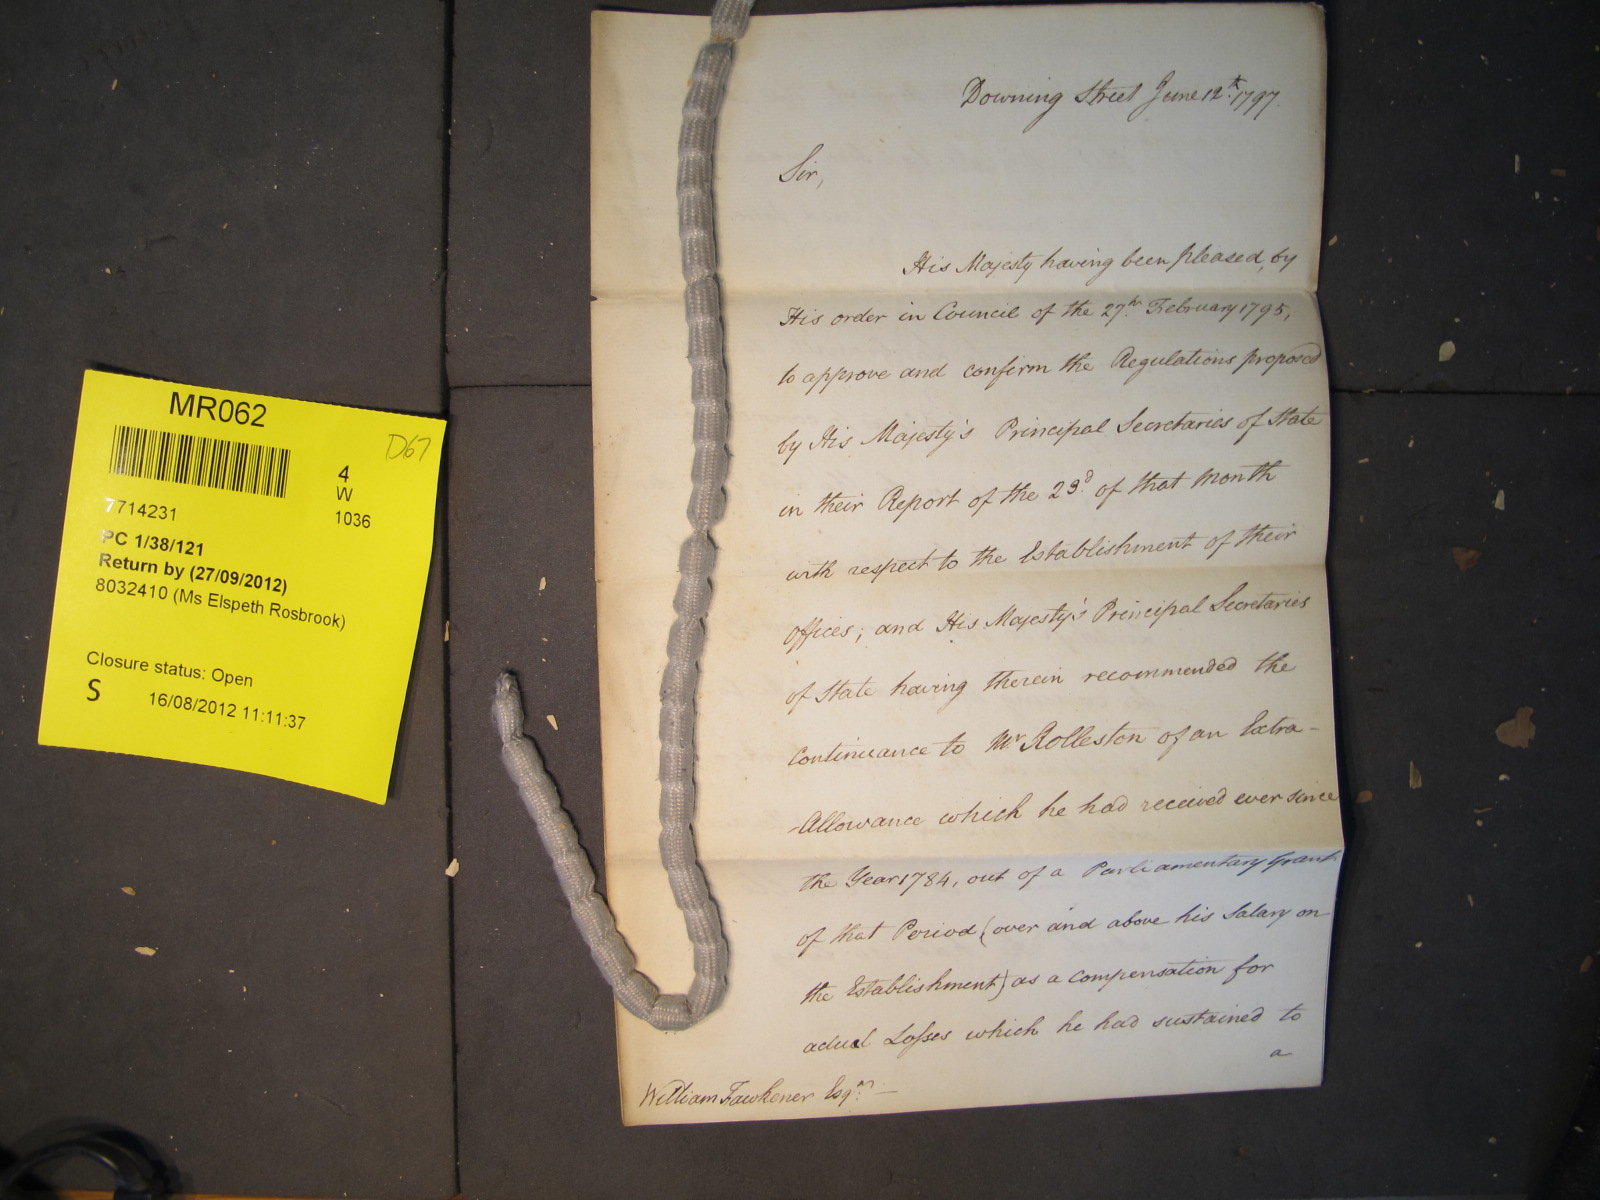 MR062
D67
4
W
1036
7714231
PC 1/38/121
Return by (27/09/2012)
8032410 (Ms Elspeth Rosbrook)
Closure status: Open
S
16/08/2012 11:11:37
Downing Street June 12th. 1797.
Sir,
His Majesty having been pleased, by
His order in Council of the 27th. February 1795,
to approve and confirm the Regulations proposed
by His Majesty's Principal Secretaries of State
in their Report of the 23d. of that Month
with respect to the Establishment of their
Offices; and His Majesty's Principal Secretaries
of State having therein recommended the
Continuance to Mr. Rolleston of an Extra-
-Allowance which he had received ever since
the Year 1784, out of a Parliamentary Grant
of that Period (over and above his Salary on
the Establishment) as a compensation for
actual Losses which he had sustained to
a
William Fawkener Esqr. —